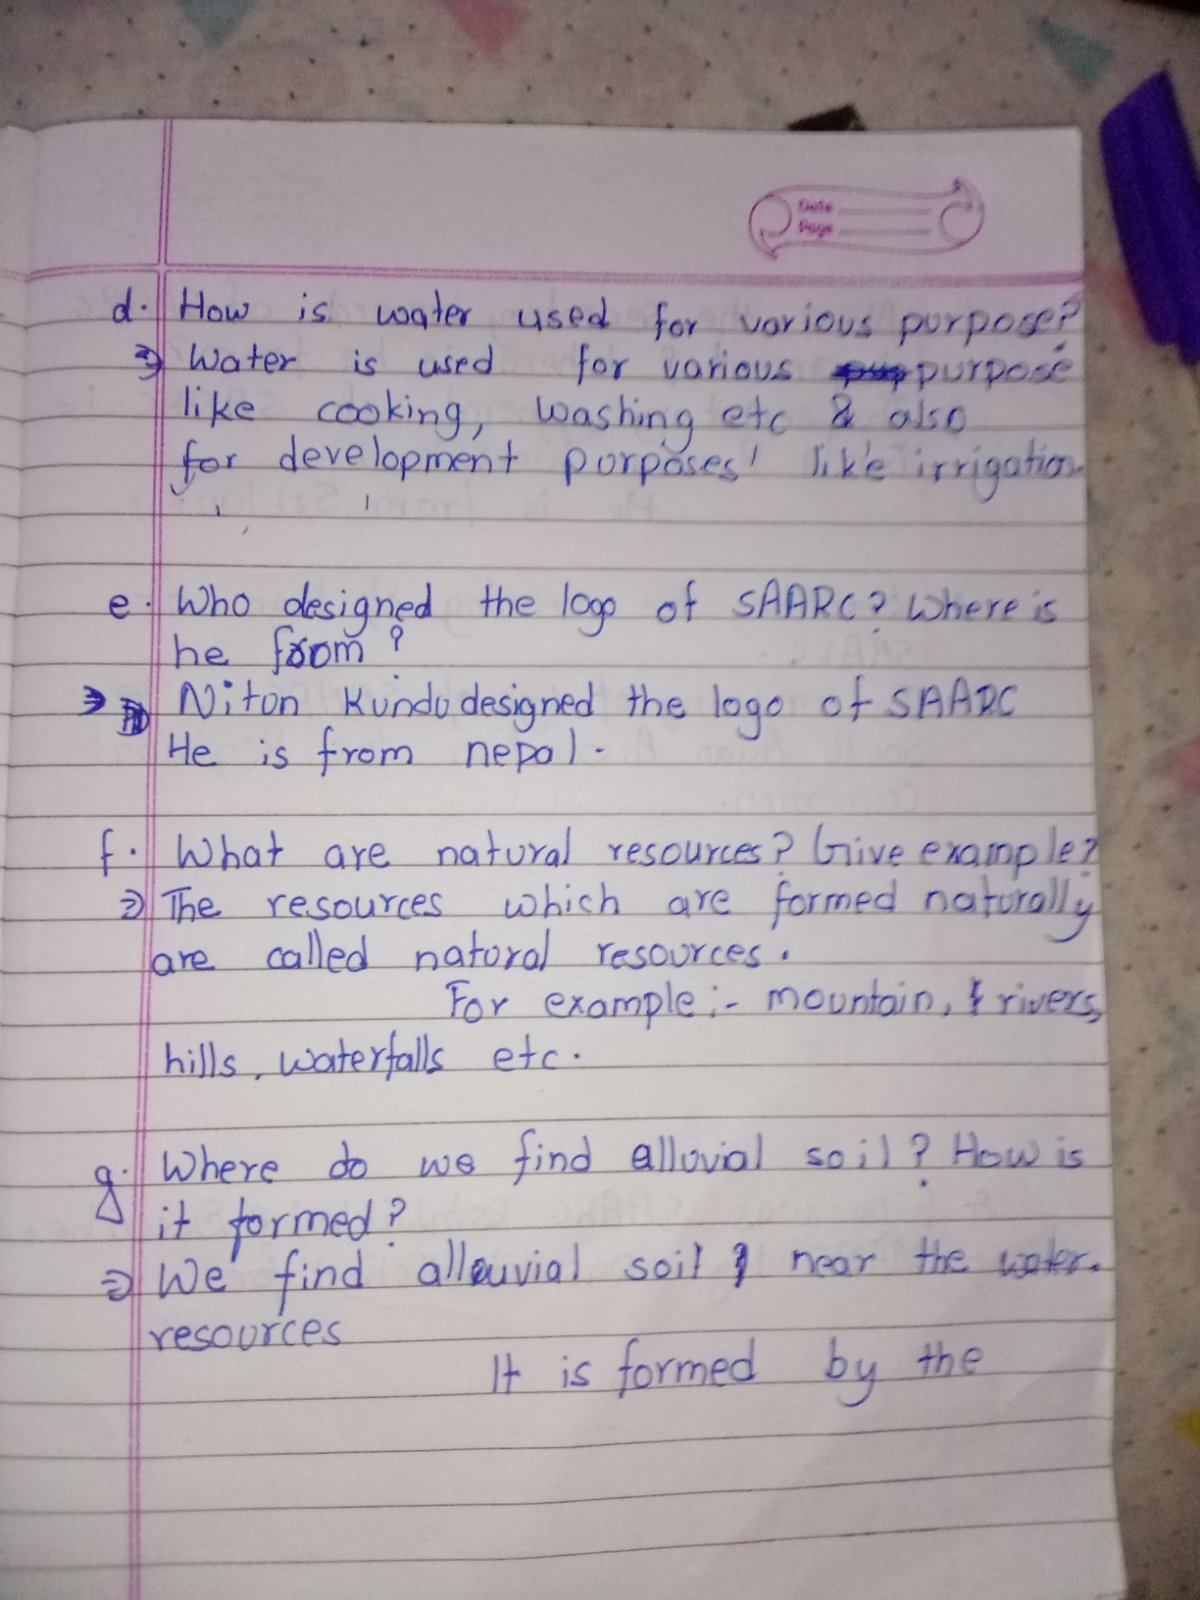 Date
Page
d. How is water used for various purpose?
⇒ Water is used for various purpose
like cooking, washing etc & also
for development purposes' like irrigation
e. Who designed the logo of SAARC? Where is
he from?
⇒ Niton Kundu designed the logo of SAARC
He is from nepal.
f. What are natural resources? Give example?
⇒ The resources which are formed naturally
are called natural resources.
For example:- mountain, rivers,
hills, waterfalls etc.
g. Where do we find alluvial soil? How is
it formed?
⇒ We find allouvial soil near the water.
resources
It is formed by the